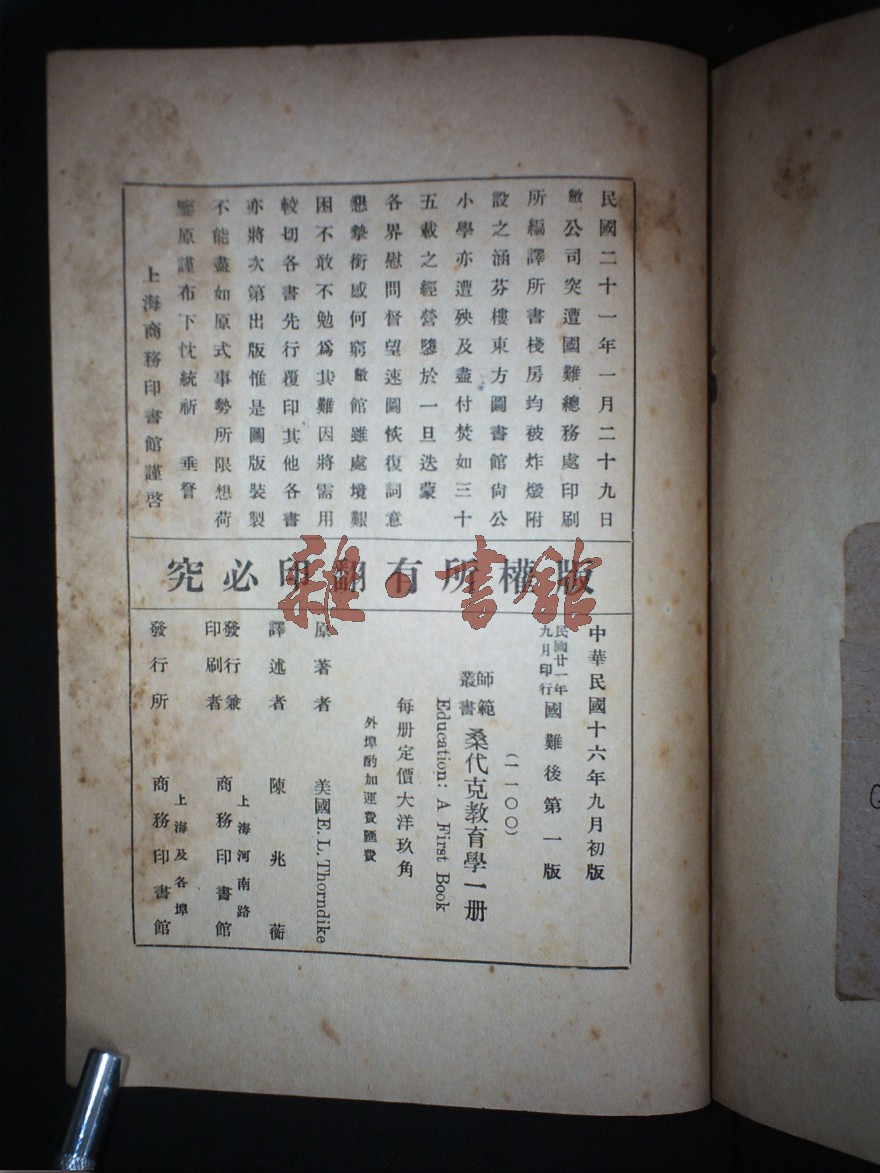 民國二十一年一月二十九日
敝公司突遭國難總務處印刷
所編譯所書棧房均被炸燬附
設之涵芬樓東方圖書館尚公
小學亦遭殃及盡付焚如三十
五載之經營隳於一旦迭蒙
各界慰問督望速圖恢復詞意
懇摯銜感何窮敝館雖處境艱
困不敢不勉爲其難因將需用
較切各書先行覆印其他各書
亦將次第出版惟是圖版裝製
不能盡如原式事勢所限想荷
鑒原謹布下忱統祈 垂詧
上海商務印書館謹啓
版權所有翻印必究
中華民國十六年九月初版
民國廿一年九月印行 國難後第一版
(一一〇〇)
師範叢書 桑代克教育學一册
Education: A First Book
每册定價大洋玖角
外埠酌加運費匯費
原著者 美國E. L. Thorndike
譯述者 陳兆蘅
發行兼印刷者 上海河南路 商務印書館
發行所 上海及各埠 商務印書館
雜·書館